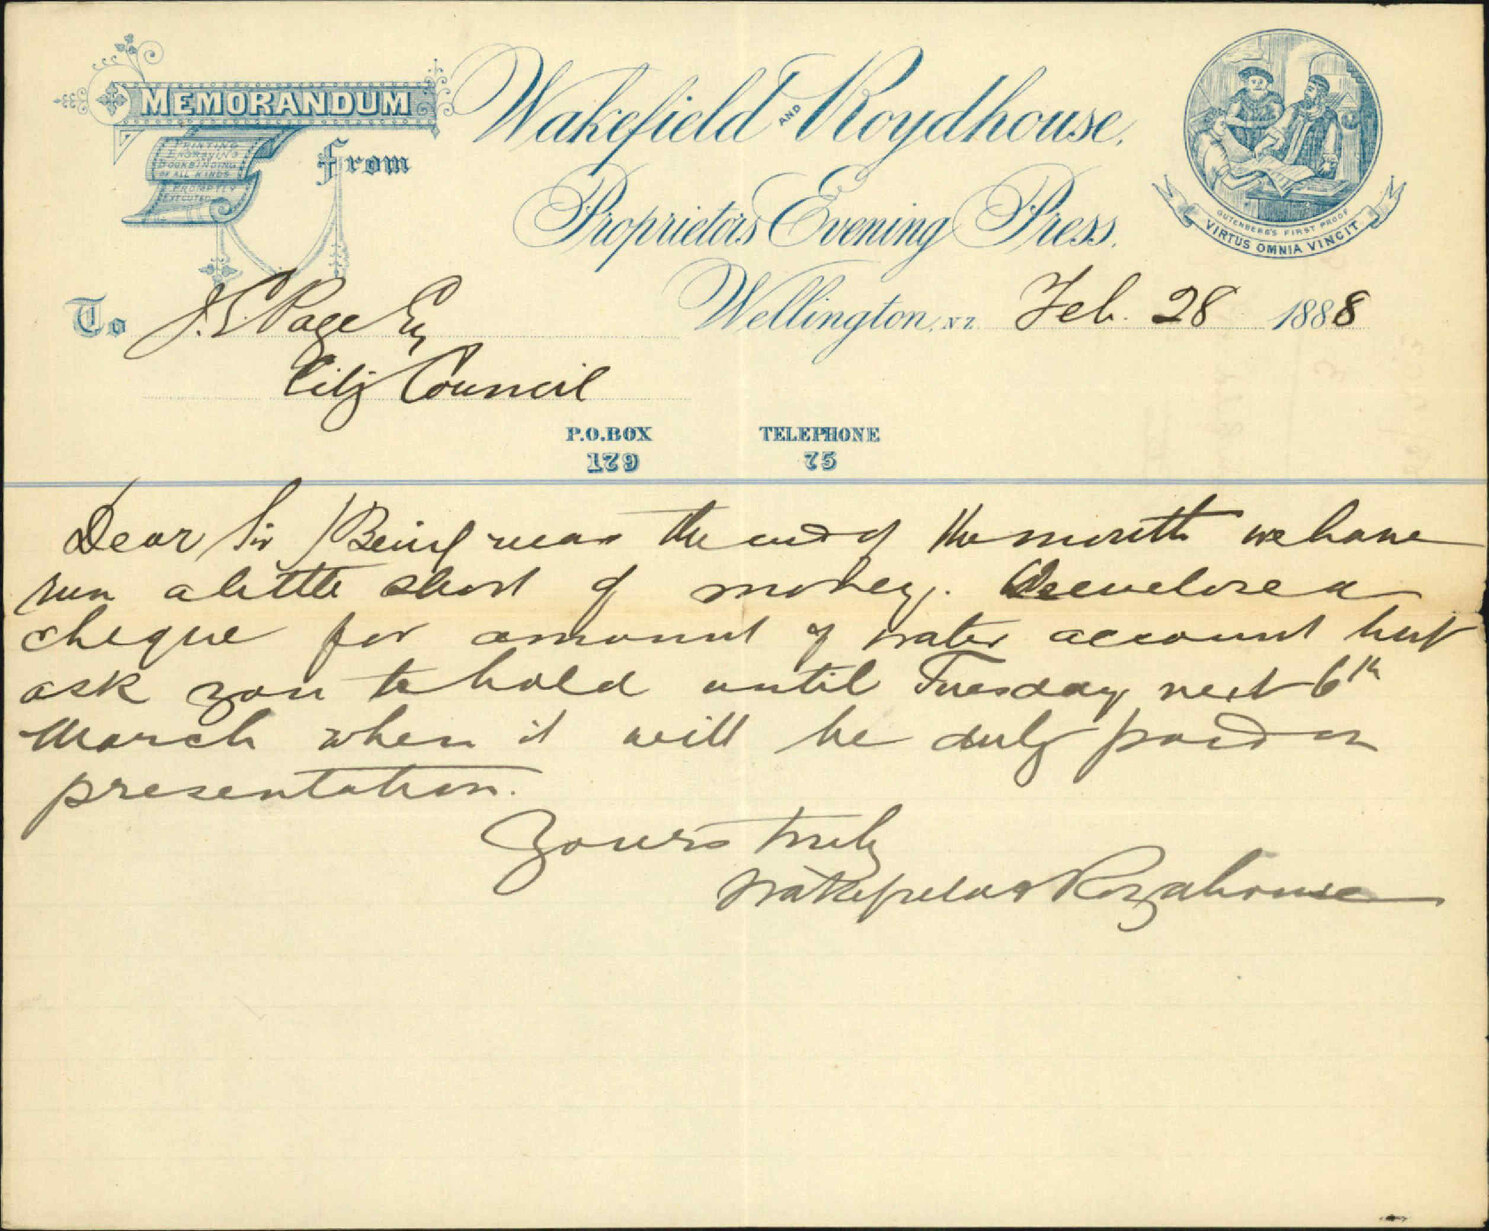 MEMORANDUM
PRINTING
ENGRAVING
AND
BOOKBINDING
OF ALL KINDS
PROMPTLY
EXECUTED
From
Wakefield AND Roydhouse,
Proprietors Evening Press,
GUTENBERG'S FIRST PROOF
VIRTUS OMNIA VINCIT
Wellington, NZ. Feb. 28 1888
To J. S. Page Esq
City Council
P.O.BOX TELEPHONE
179 75
Dear Sir / Being near the end of the month we have
run a little short of money. We enclose a
cheque for amount of water account but
ask you to hold until Tuesday next 6th
March when it will be duly paid on
presentation.
Yours truly
Wakefield & Roydhouse